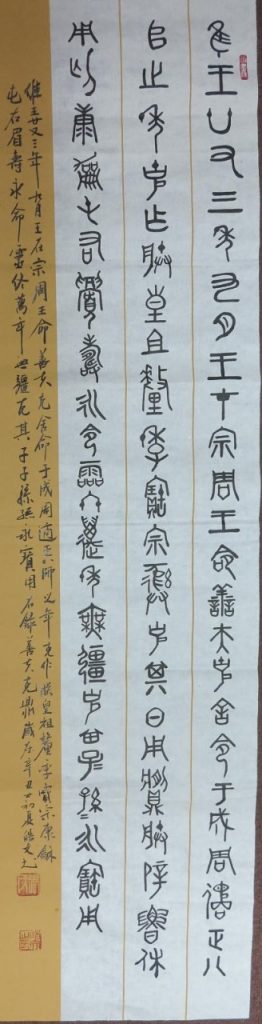 隹王廿又三年九月王才宗周王命善夫克舍令于成周遹正八
𠂤之年克乍朕皇且釐季寶宗彝克其日用朕辟魯休
用匄康屯右眉壽永令霝冬萬年無疆克其子孫永寶用
維王廿又三年九月王在宗周王命善夫克舍命于成周遹正八師之年克作朕皇祖釐季寶宗康
屯右眉壽永命靈終萬年無疆克其子子孫孫永寶用右錄善夫克鼎歲在辛丑初夏浩文